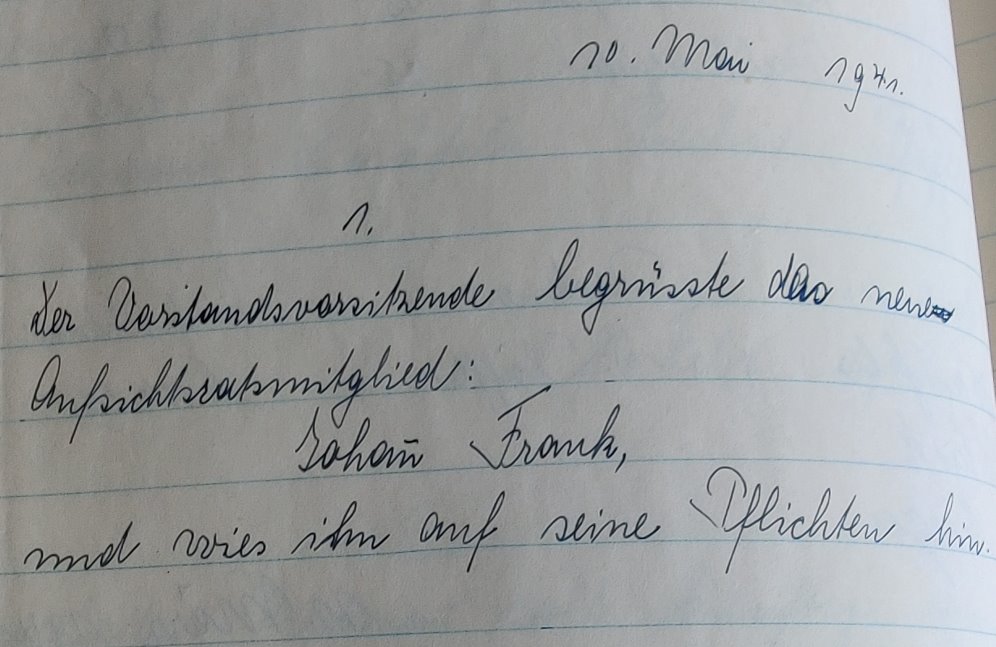 10. Mai 1941.
1.
Der Vorstandsvorsitzende begrüsste das neue
Aufsichtsratsmitglied:
Johan̄ Frank,
und wies ihn auf seine Pflichten hin.